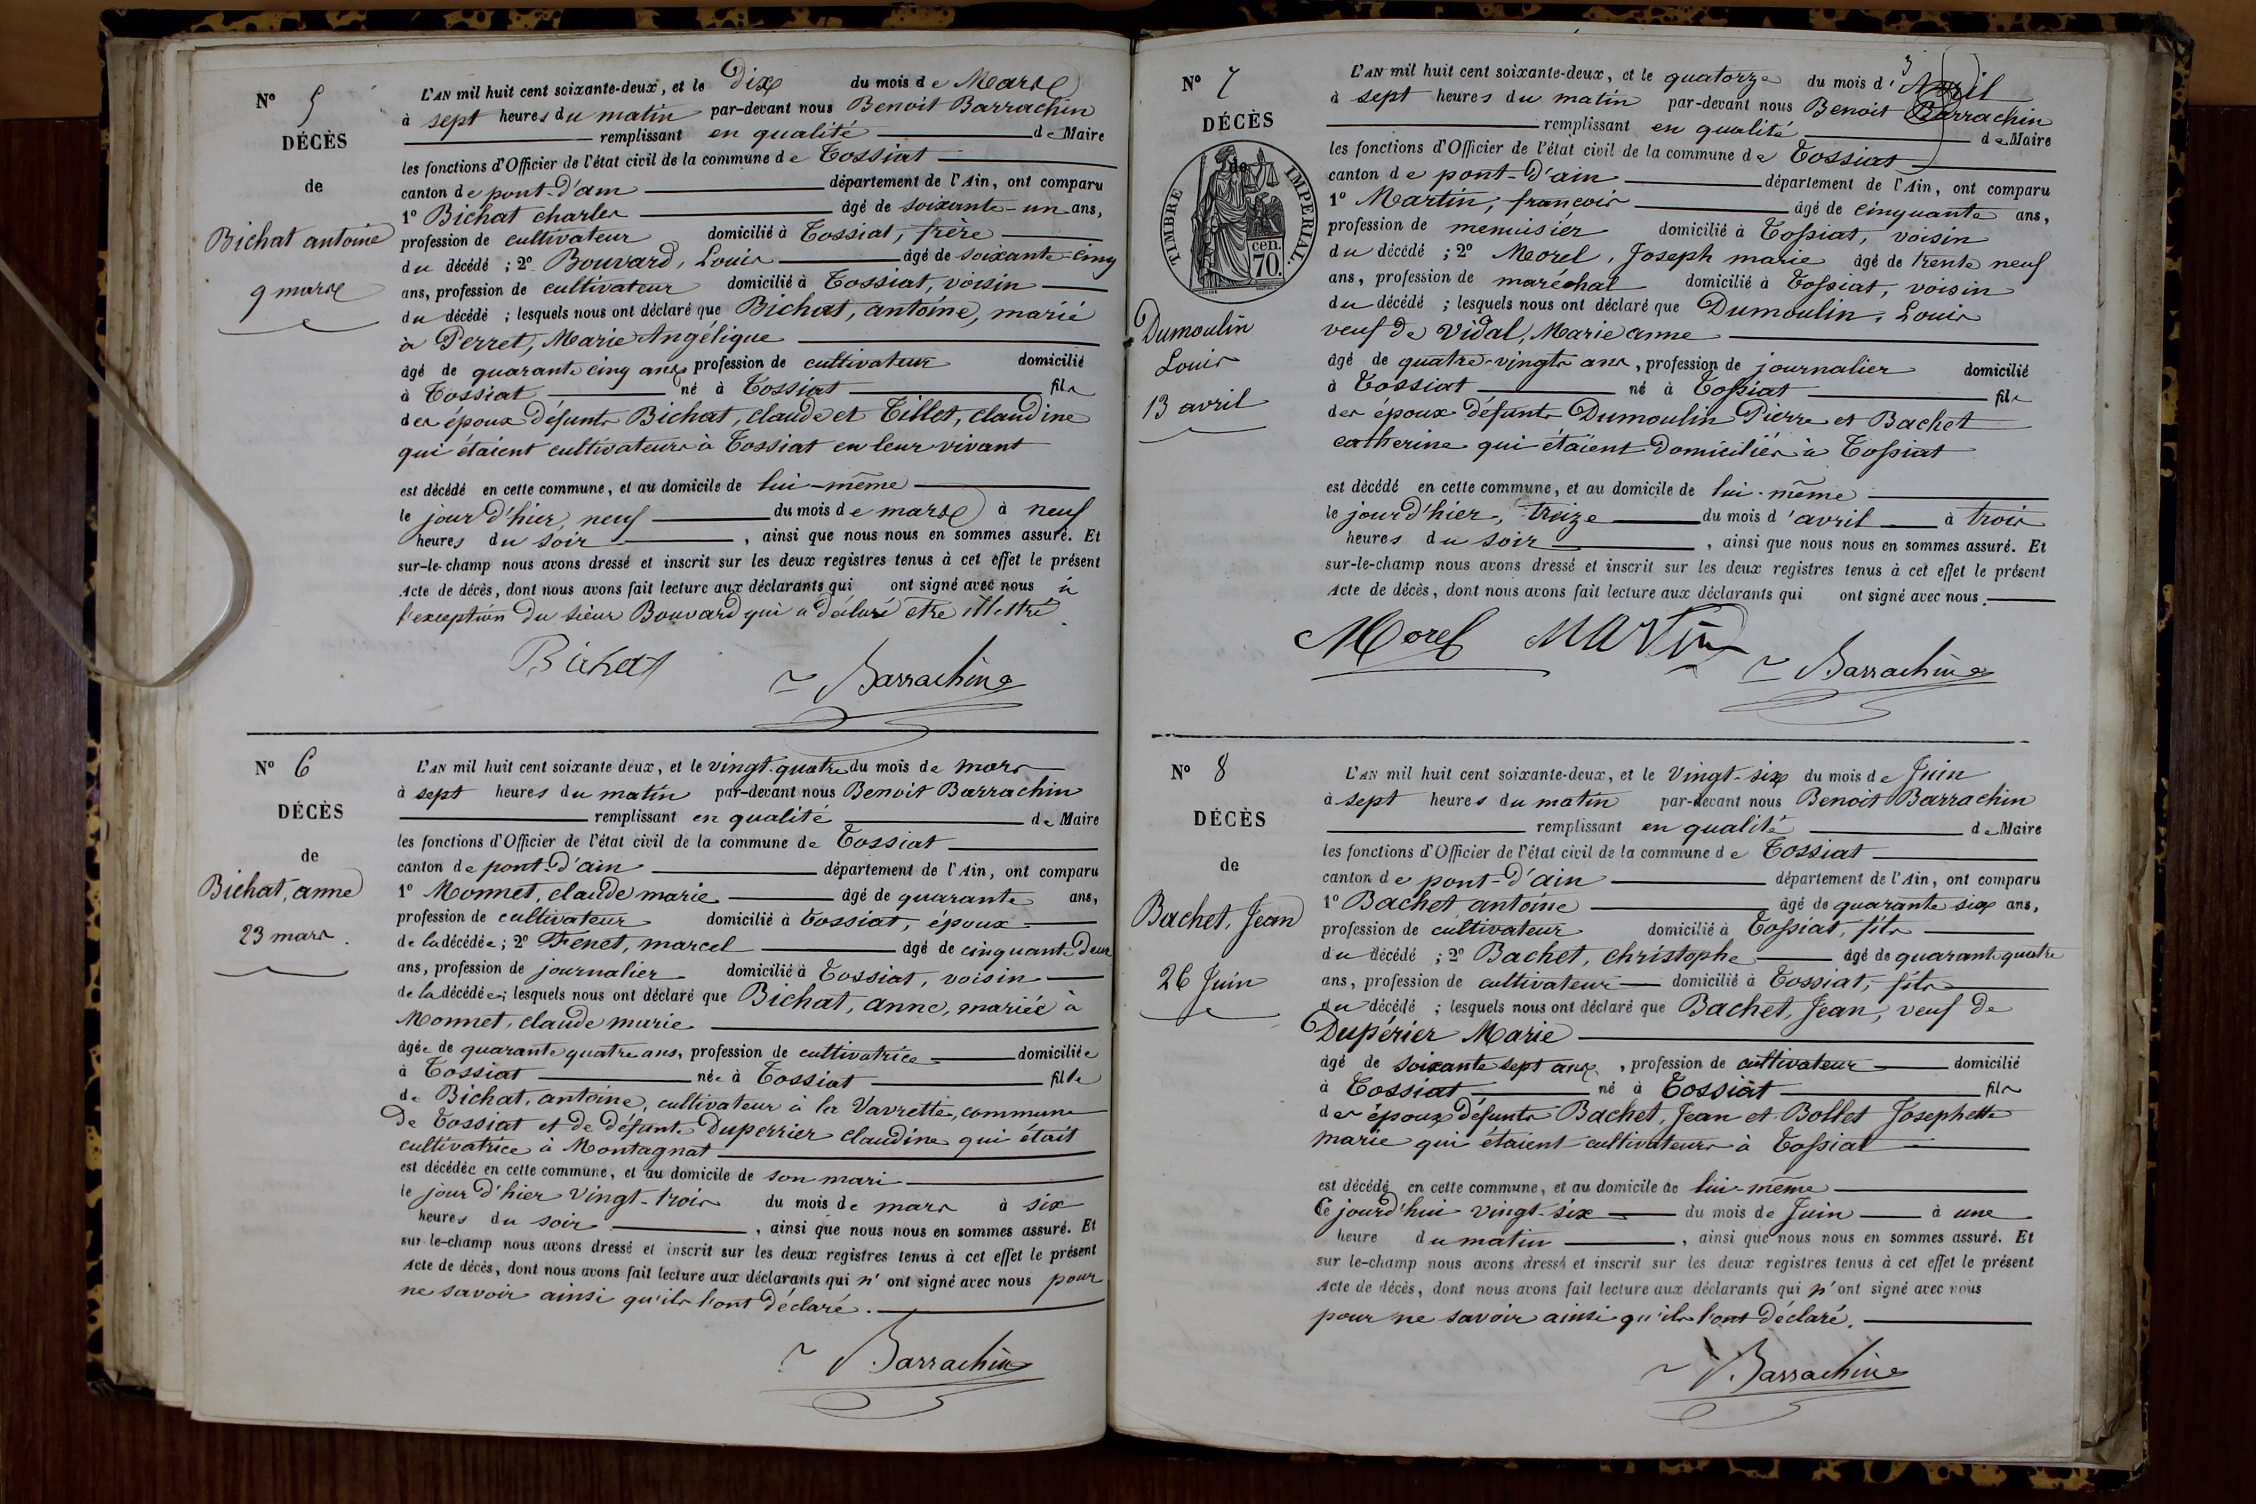 N° 5
DÉCÈS
de
Bichat antoine
9 mars
L'AN mil huit cent soixante-deux, et le Dix du mois de Mars
à sept heures du matin par-devant nous Benoit Barrachin
remplissant en qualité de Maire
les fonctions d'Officier de l'état civil de la commune de Tossiat
canton de pont-d'ain département de l'Ain, ont comparu
1° Bichat charles âgé de soixante-un ans,
profession de cultivateur domicilié à Tossiat, frère
du décédé ; 2° Bouvard, Louis âgé de soixante-cinq
ans, profession de cultivateur domicilié à Tossiat, voisin
du décédé ; lesquels nous ont déclaré que Bichat, antoine, marié
à Perret, Marie Angélique
âgé de quarante cinq ans profession de cultivateur domicilié
à Tossiat né à Tossiat fils
des époux défunts Bichat, claude et Tillet, claudine
qui étaient cultivateurs à Tossiat en leur vivant
est décédé en cette commune, et au domicile de lui-même
le jour d'hier, neuf du mois de mars à neuf
heures du soir , ainsi que nous nous en sommes assuré. Et
sur-le-champ nous avons dressé et inscrit sur les deux registres tenus à cet effet le présent
Acte de décès, dont nous avons fait lecture aux déclarants qui ont signé avec nous à
l'exception du sieur Bouvard qui a déclaré etre illettré.
Bichat Barrachin
N° 6
DÉCÈS
de
Bichat, anne
23 mars.
L'AN mil huit cent soixante deux, et le vingt-quatre du mois de mars
à sept heures du matin par-devant nous Benoit Barrachin
remplissant en qualité de Maire
les fonctions d'Officier de l'état civil de la commune de Tossiat
canton de pont-d'ain département de l'Ain, ont comparu
1° Monnet, claude marie âgé de quarante ans,
profession de cultivateur domicilié à Tossiat, époux
de la décédée ; 2° Fenet, marcel âgé de cinquante deux
ans, profession de journalier domicilié à Tossiat, voisin
de la décédée ; lesquels nous ont déclaré que Bichat, anne, mariée à
Monnet, claude marie
âgée de quarante quatre ans, profession de cultivatrice domiciliée
à Tossiat née à Tossiat fille
de Bichat, antoine, cultivateur à la Vavrette, commune
de Tossiat et de défunte Duperrier claudine qui était
cultivatrice à Montagnat
est décédée en cette commune, et au domicile de son mari
le jour d'hier vingt-trois du mois de mars à six
heures du soir , ainsi que nous nous en sommes assuré. Et
sur le-champ nous avons dressé et inscrit sur les deux registres tenus à cet effet le présent
Acte de décès, dont nous avons fait lecture aux déclarants qui n'ont signé avec nous pour
ne savoir ainsi qu'ils l'ont déclaré.
Barrachin
N° 7
DÉCÈS
de
TIMBRE IMPERIAL.
cen.
70.
Dumoulin
Louis
13 avril
L'AN mil huit cent soixante-deux, et le quatorze du mois d'Avril
à sept heures du matin par-devant nous Benoit Barrachin
remplissant en qualité de Maire
les fonctions d'Officier de l'état civil de la commune de Tossiat
canton de pont-d'ain département de l'Ain, ont comparu
1° Martin, francois âgé de cinquante ans,
profession de menuisier domicilié à Tossiat, voisin
du décédé ; 2° Morel, Joseph marie âgé de trente neuf
ans, profession de maréchal domicilié à Tossiat, voisin
du décédé ; lesquels nous ont déclaré que Dumoulin, Louis
veuf de Vidal, Marie anne
âgé de quatre-vingts ans, profession de journalier domicilié
à Tossiat né à Tossiat fils
des époux défunts Dumoulin Pierre et Bachet
catherine qui étaient domiciliés à Tossiat
est décédé en cette commune, et au domicile de lui-même
le jour d'hier, treize du mois d'avril à trois
heures du soir , ainsi que nous nous en sommes assuré. Et
sur-le-champ nous avons dressé et inscrit sur les deux registres tenus à cet effet le présent
Acte de décès, dont nous avons fait lecture aux déclarants qui ont signé avec nous.
Morel MARTin Barrachin
N° 8
DÉCÈS
de
Bachet, Jean
26 Juin
L'AN mil huit cent soixante-deux, et le vingt-six du mois de Juin
à sept heures du matin par-devant nous Benoit Barrachin
remplissant en qualité de Maire
les fonctions d'Officier de l'état civil de la commune de Tossiat
canton de pont-d'ain département de l'Ain, ont comparu
1° Bachet antoine âgé de quarante six ans,
profession de cultivateur domicilié à Tossiat, fils
du décédé ; 2° Bachet, christophe âgé de quarante quatre
ans, profession de cultivateur domicilié à Tossiat, fils
du décédé ; lesquels nous ont déclaré que Bachet, Jean, veuf de
Dupérier Marie
âgé de soixante sept ans, profession de cultivateur domicilié
à Tossiat né à Tossiat fils
des époux défunts Bachet, Jean et Bollet Josephette
marie qui étaient cultivateurs à Tossiat
est décédé en cette commune, et au domicile de lui-même
Ce jourd'hui vingt-six du mois de Juin à une
heure du matin , ainsi que nous nous en sommes assuré. Et
sur le-champ nous avons dressé et inscrit sur les deux registres tenus à cet effet le présent
Acte de décès, dont nous avons fait lecture aux déclarants qui n'ont signé avec nous
pour ne savoir ainsi qu'ils l'ont déclaré.
Barrachin